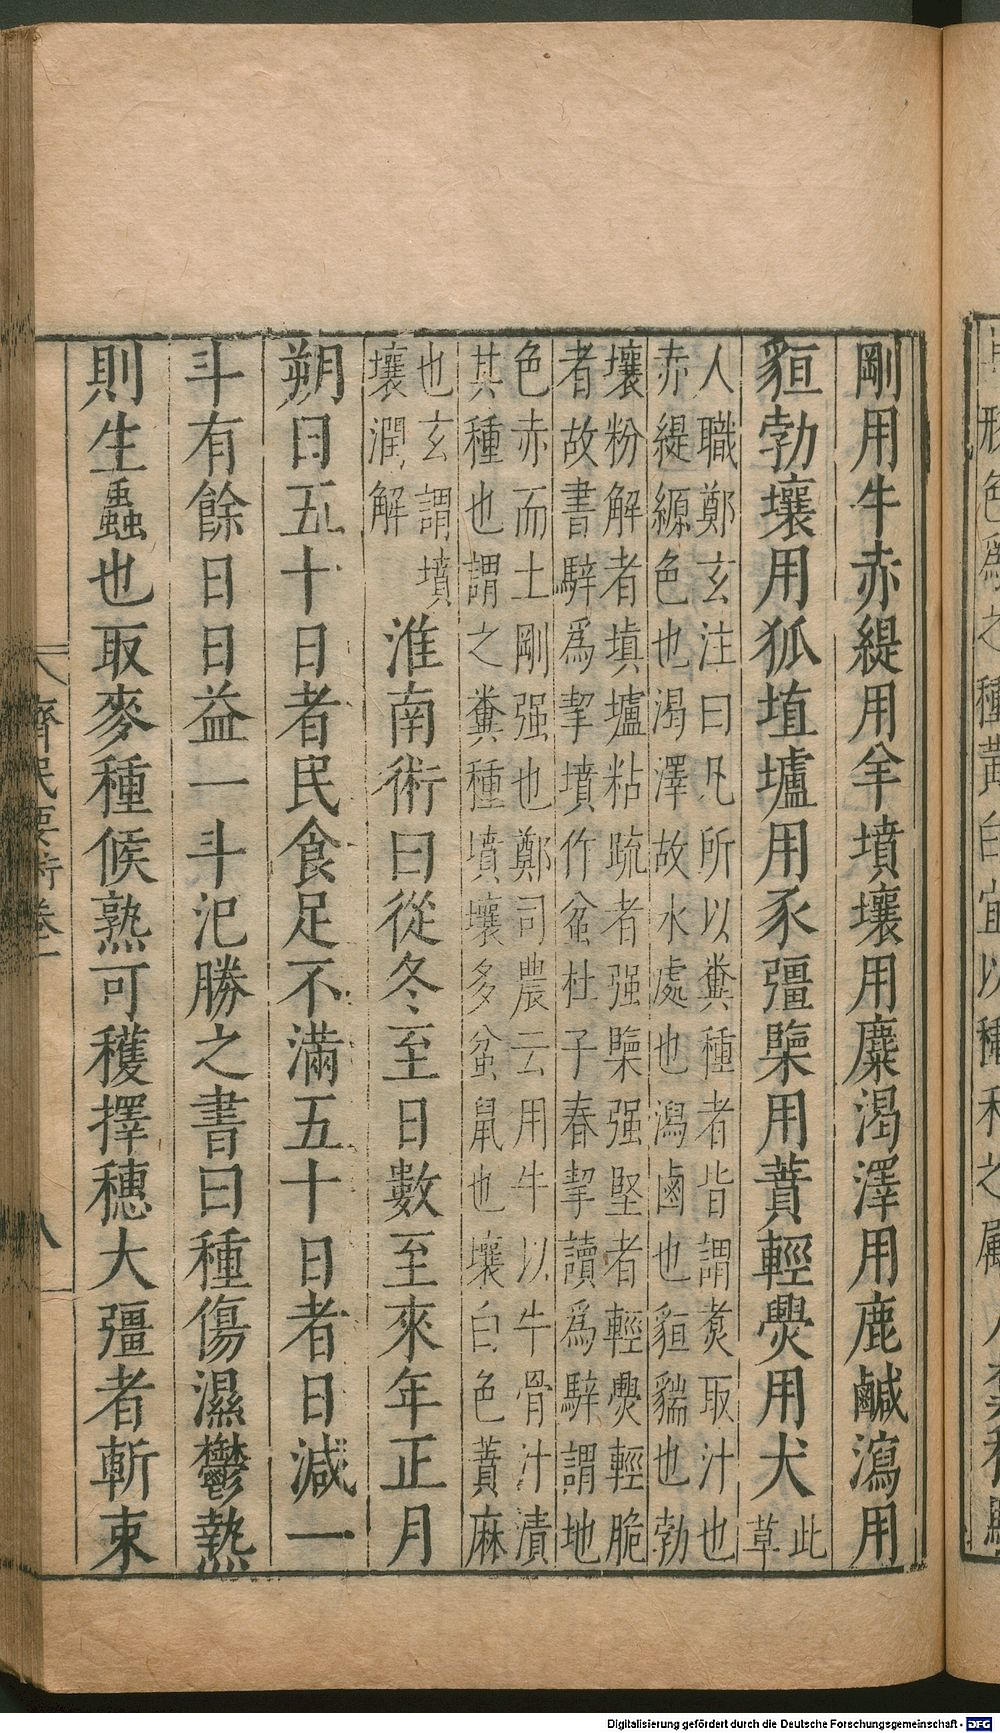 形色爲之種黃白宜以種禾之屬
剛用牛赤緹用羊墳壤用麋渴澤用鹿鹹潟用
貆勃壤用狐埴壚用豕彊㯺用蕡輕爂用犬此
草
人職鄭玄注曰凡所以糞種者皆謂煑取汁也
赤緹縓色也渴澤故水處也潟鹵也貆貒也勃
壤粉解者填壚粘疏者强㯺强堅者輕爂輕脆
者故書騂爲挈墳作坌杜子春挈讀爲騂謂地
色赤而土剛强也鄭司農云用牛以牛骨汁漬
其種也謂之糞種墳壤多蚠鼠也壤白色蕡麻
也玄謂墳
壤潤解
淮南術曰從冬至日數至來年正月
朔日五十日者民食足不滿五十日者日減一
斗有餘日日益一斗氾勝之書曰種傷濕鬱熱
則生蟲也取麥種候熟可穫擇穗大彊者斬束
齊民要術卷一
八
Digitalisierung gefördert durch die Deutsche Forschungsgemeinschaft - DFG